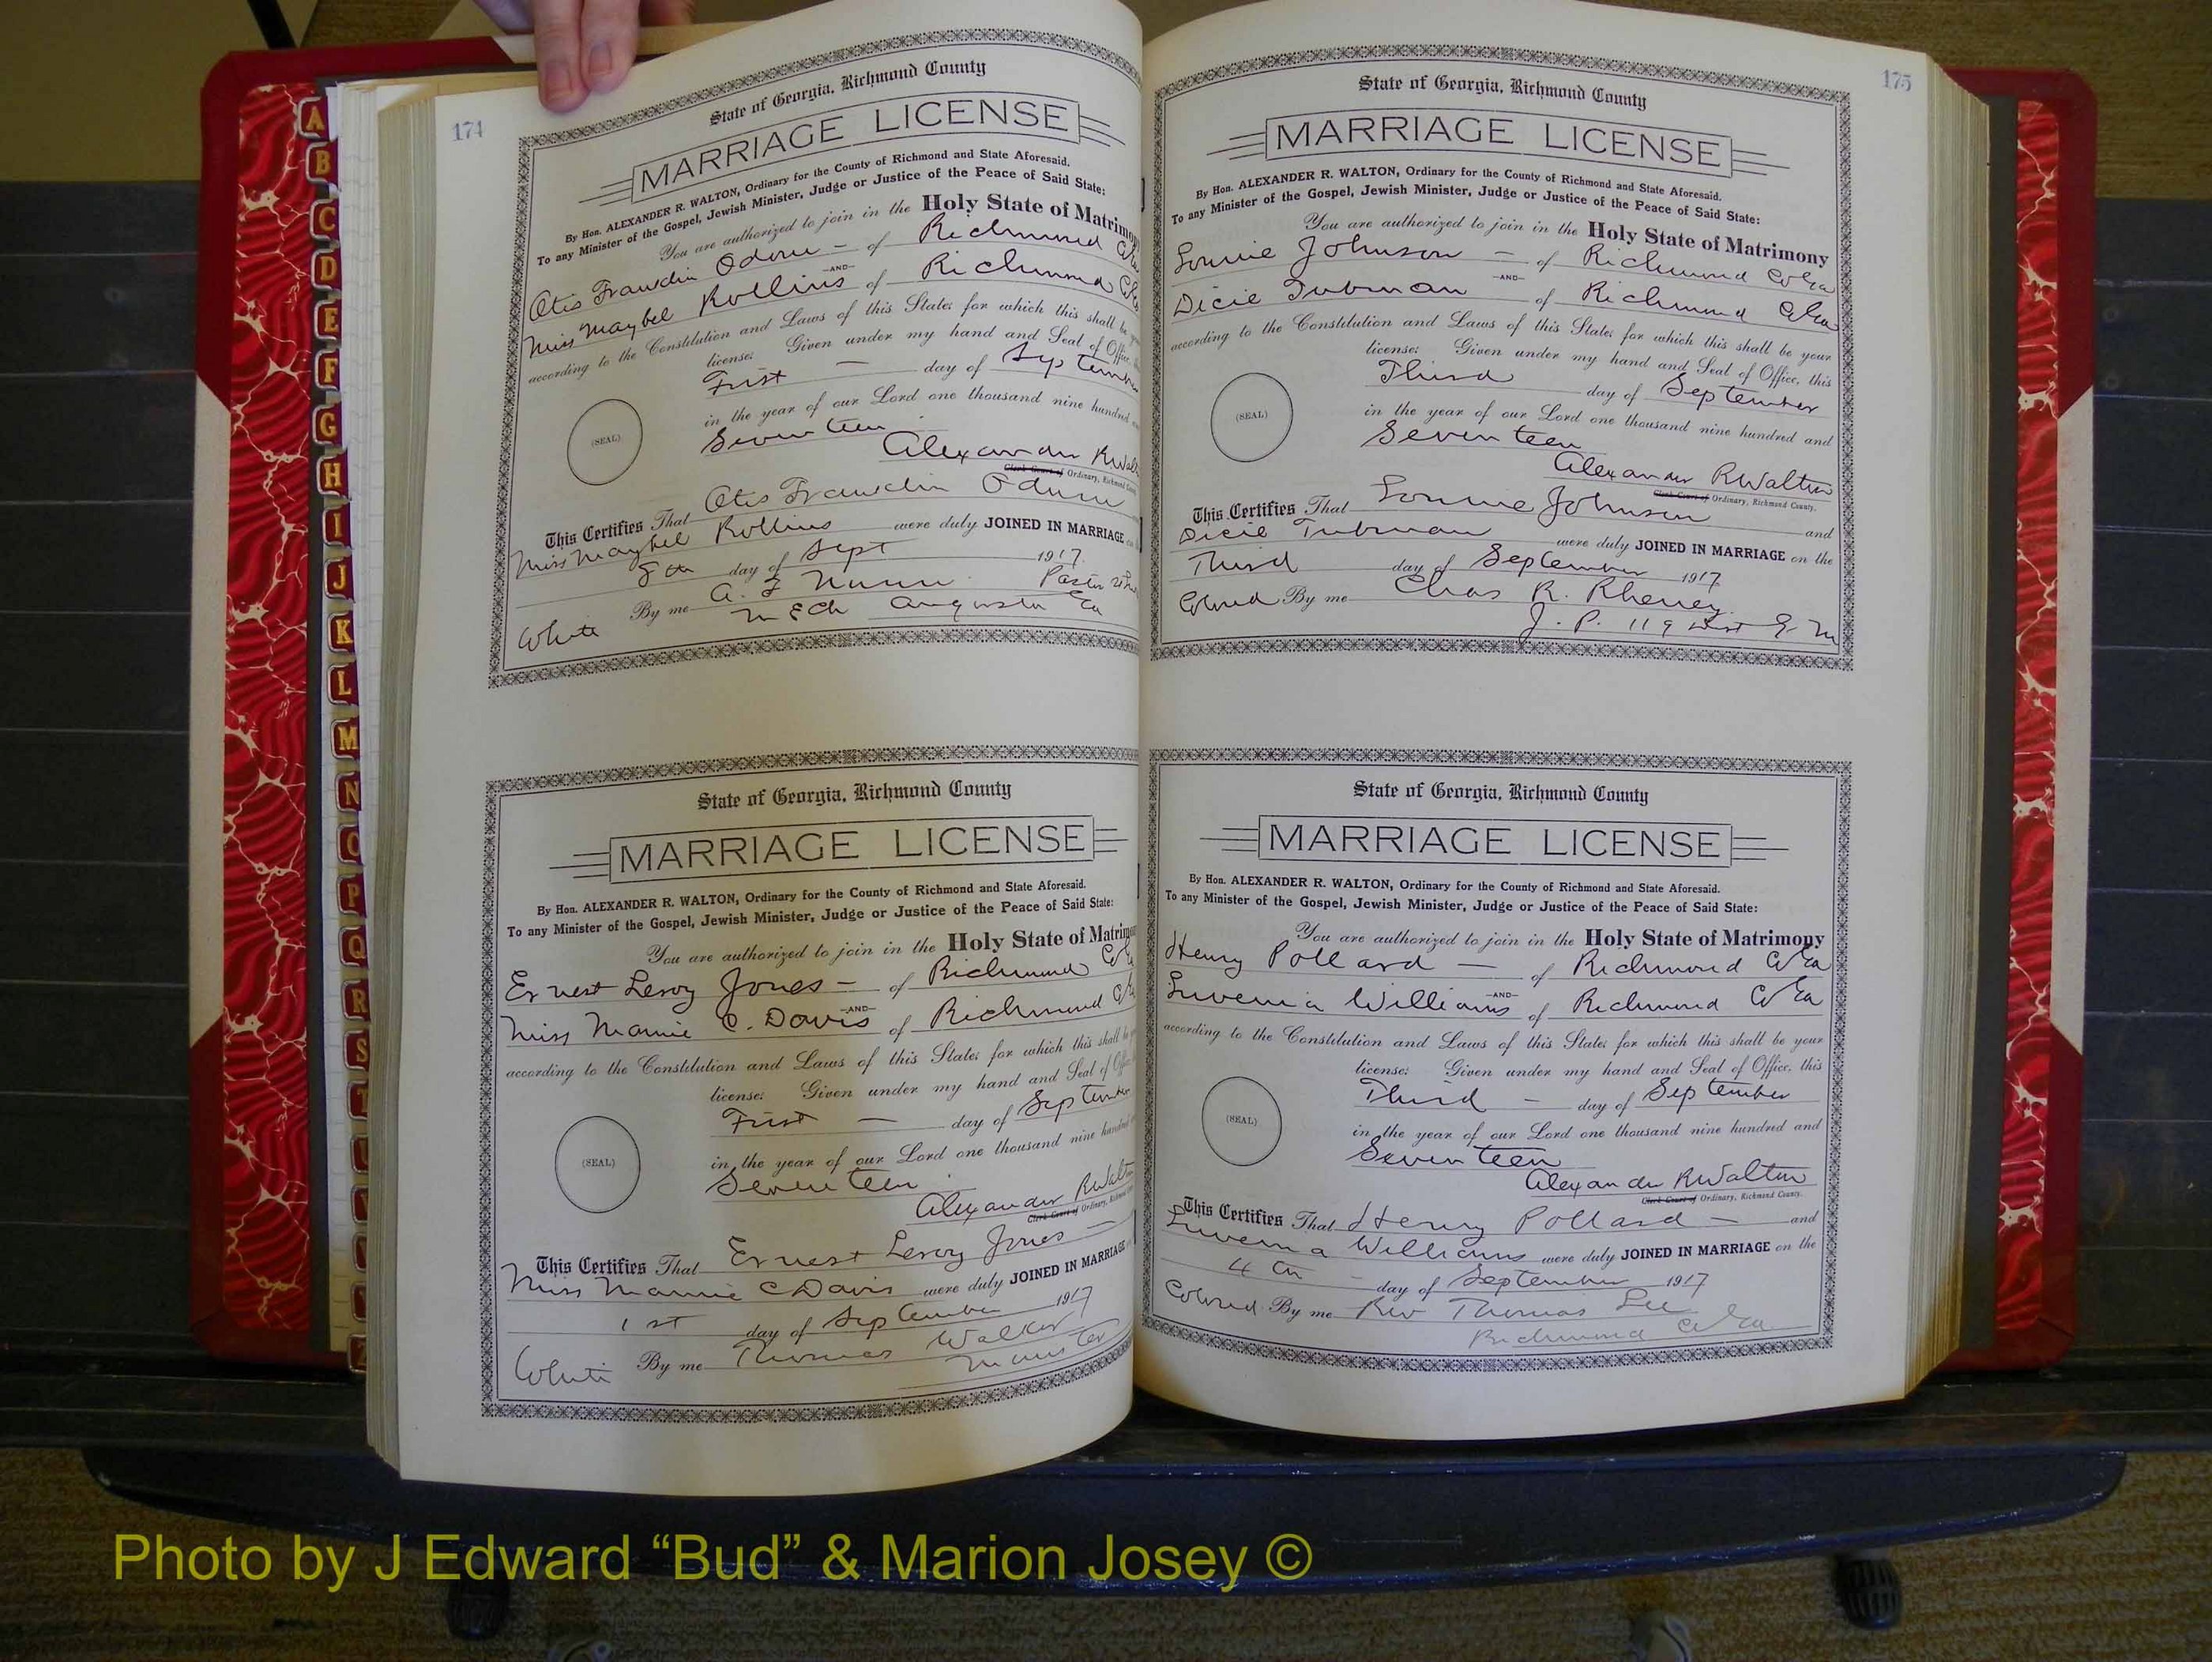 174
State of Georgia, Richmond County
MARRIAGE LICENSE
By Hon. ALEXANDER R. WALTON, Ordinary for the County of Richmond and State Aforesaid.
To any Minister of the Gospel, Jewish Minister, Judge or Justice of the Peace of Said State:
You are authorized to join in the Holy State of Matrimony
Otis Franklin Odum - of Richmond
-AND-
Miss Maybel Rollins of Richmond
according to the Constitution and Laws of this State; for which this shall be
license: Given under my hand and Seal of Office,
First - day of Septem
(SEAL)
in the year of our Lord one thousand nine hundred
Seventeen
Alexander R Walt
Clerk Court of Ordinary, Richmond
This Certifies That Otis Franklin Odum
Miss Maybel Rollins were duly JOINED IN MARRIAGE
8th day of Sept 1917.
By me A. F Nunn Pastor
White M E Ch Augusta Ga
State of Georgia, Richmond County
MARRIAGE LICENSE
By Hon. ALEXANDER R. WALTON, Ordinary for the County of Richmond and State Aforesaid.
To any Minister of the Gospel, Jewish Minister, Judge or Justice of the Peace of Said State:
You are authorized to join in the Holy State of Matrimo
Ernest Leroy Jones - of Richmond Co
-AND-
Miss Mannie C. Davis of Richmond
according to the Constitution and Laws of this State; for which this shall be
license: Given under my hand and Seal of
First - day of September
(SEAL)
in the year of our Lord one thousand nine hundred
Seventeen
Alexander R Walt
Clerk Court of Ordinary,
This Certifies That Ernest Leroy Jones -
Miss Mannie C Davis were duly JOINED IN MARRIAGE
1st day of September 1917
By me Thomas Walker
White Minister
175
State of Georgia, Richmond County
MARRIAGE LICENSE
By Hon. ALEXANDER R. WALTON, Ordinary for the County of Richmond and State Aforesaid.
To any Minister of the Gospel, Jewish Minister, Judge or Justice of the Peace of Said State:
You are authorized to join in the Holy State of Matrimony
Lonnie Johnson - of Richmond Co Ga
-AND-
Dicie Tubman of Richmond Co Ga
according to the Constitution and Laws of this State; for which this shall be your
license: Given under my hand and Seal of Office, this
Third day of September
(SEAL)
in the year of our Lord one thousand nine hundred and
Seventeen
Alexander R Walton
Clerk Court of Ordinary, Richmond County.
This Certifies That Lonnie Johnson and
Dicie Tubman were duly JOINED IN MARRIAGE on the
Third day of September 1917
Colored By me Chas R. Rheney.
J. P. 119 Dist G M
State of Georgia, Richmond County
MARRIAGE LICENSE
By Hon. ALEXANDER R. WALTON, Ordinary for the County of Richmond and State Aforesaid.
To any Minister of the Gospel, Jewish Minister, Judge or Justice of the Peace of Said State:
You are authorized to join in the Holy State of Matrimony
Henry Pollard - of Richmond Co Ga
-AND-
Luvenia Williams of Richmond Co Ga
according to the Constitution and Laws of this State; for which this shall be your
license: Given under my hand and Seal of Office, this
Third - day of September
(SEAL)
in the year of our Lord one thousand nine hundred and
Seventeen
Alexander R Walton
Clerk Court of Ordinary, Richmond County.
This Certifies That Henry Pollard - and
Luvenia Williams were duly JOINED IN MARRIAGE on the
4th - day of September 1917
Colored By me Rev Thomas Lee
Richmond Co Ga
A
B
C
D
E
F
G
H
I
J
K
L
M
N
O
P
Q
R
S
T
Photo by J Edward “Bud” & Marion Josey ©